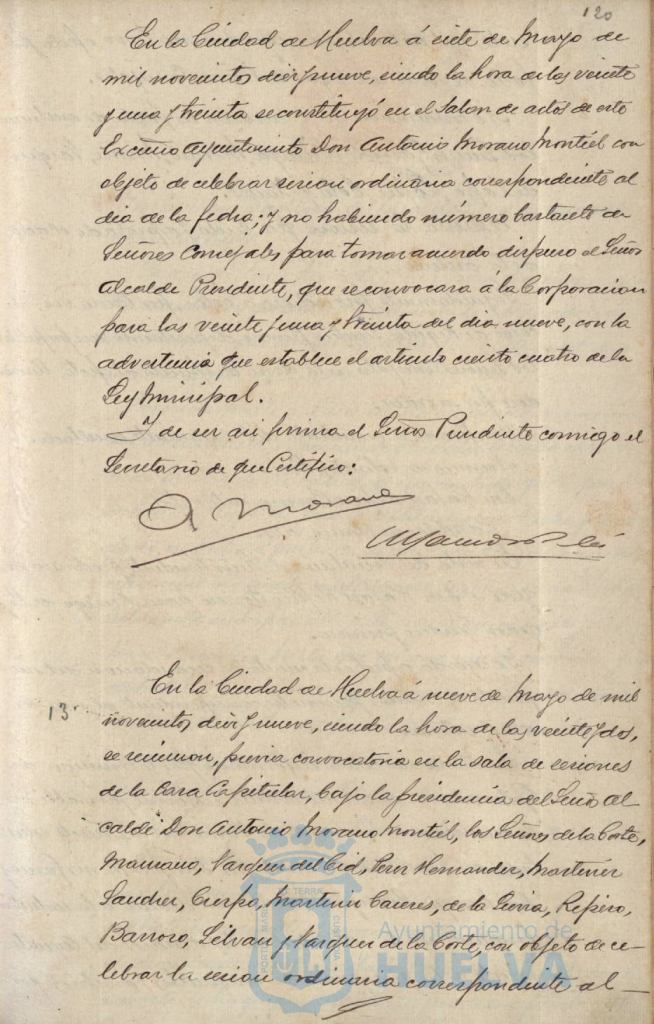 120
En la Ciudad de Huelva á siete de Mayo de
mil novecientos diez y nueve, siendo la hora de las veinte
y una y treinta se constituyó en el Salon de actos de este
Excmo Ayuntamiento Don Antonio Morano Montiel con
objeto de celebrar sesion ordinaria correspondiente al
dia de la fecha; y no habiendo número bastante de
Señores Concejales para tomar acuerdo dispuso el Señor
Alcalde Presidente, que se convocara á la Corporacion
para las veinte y una y treinta del dia nueve, con la
advertencia que establece el articulo ciento cuatro de la
Ley Municipal.
Y de ser asi firma el Señor Presidente conmigo el
Secretario de que Certifico:
A Morano
En la Ciudad de Huelva á nueve de Mayo de mil
13
novecientos diez y nueve, siendo la hora de las veinte y dos,
se reunieron, previa convocatoria en la sala de sesiones
de la Casa Capitular, bajo la presidencia del Señor Al
calde Don Antonio Morano Montiel, los Señores de la Corte,
Mascaros, Vazquez del Cid, Perez Hernandez, Martinez
Sanchez, Crespo, Martinez Caceres, de la Sierra, Repiso,
Barroso, Silvan y Vazquez de la Corte, con objeto de ce-
lebrar la sesion ordinaria correspondiente al
Ayuntamiento de
HUELVA